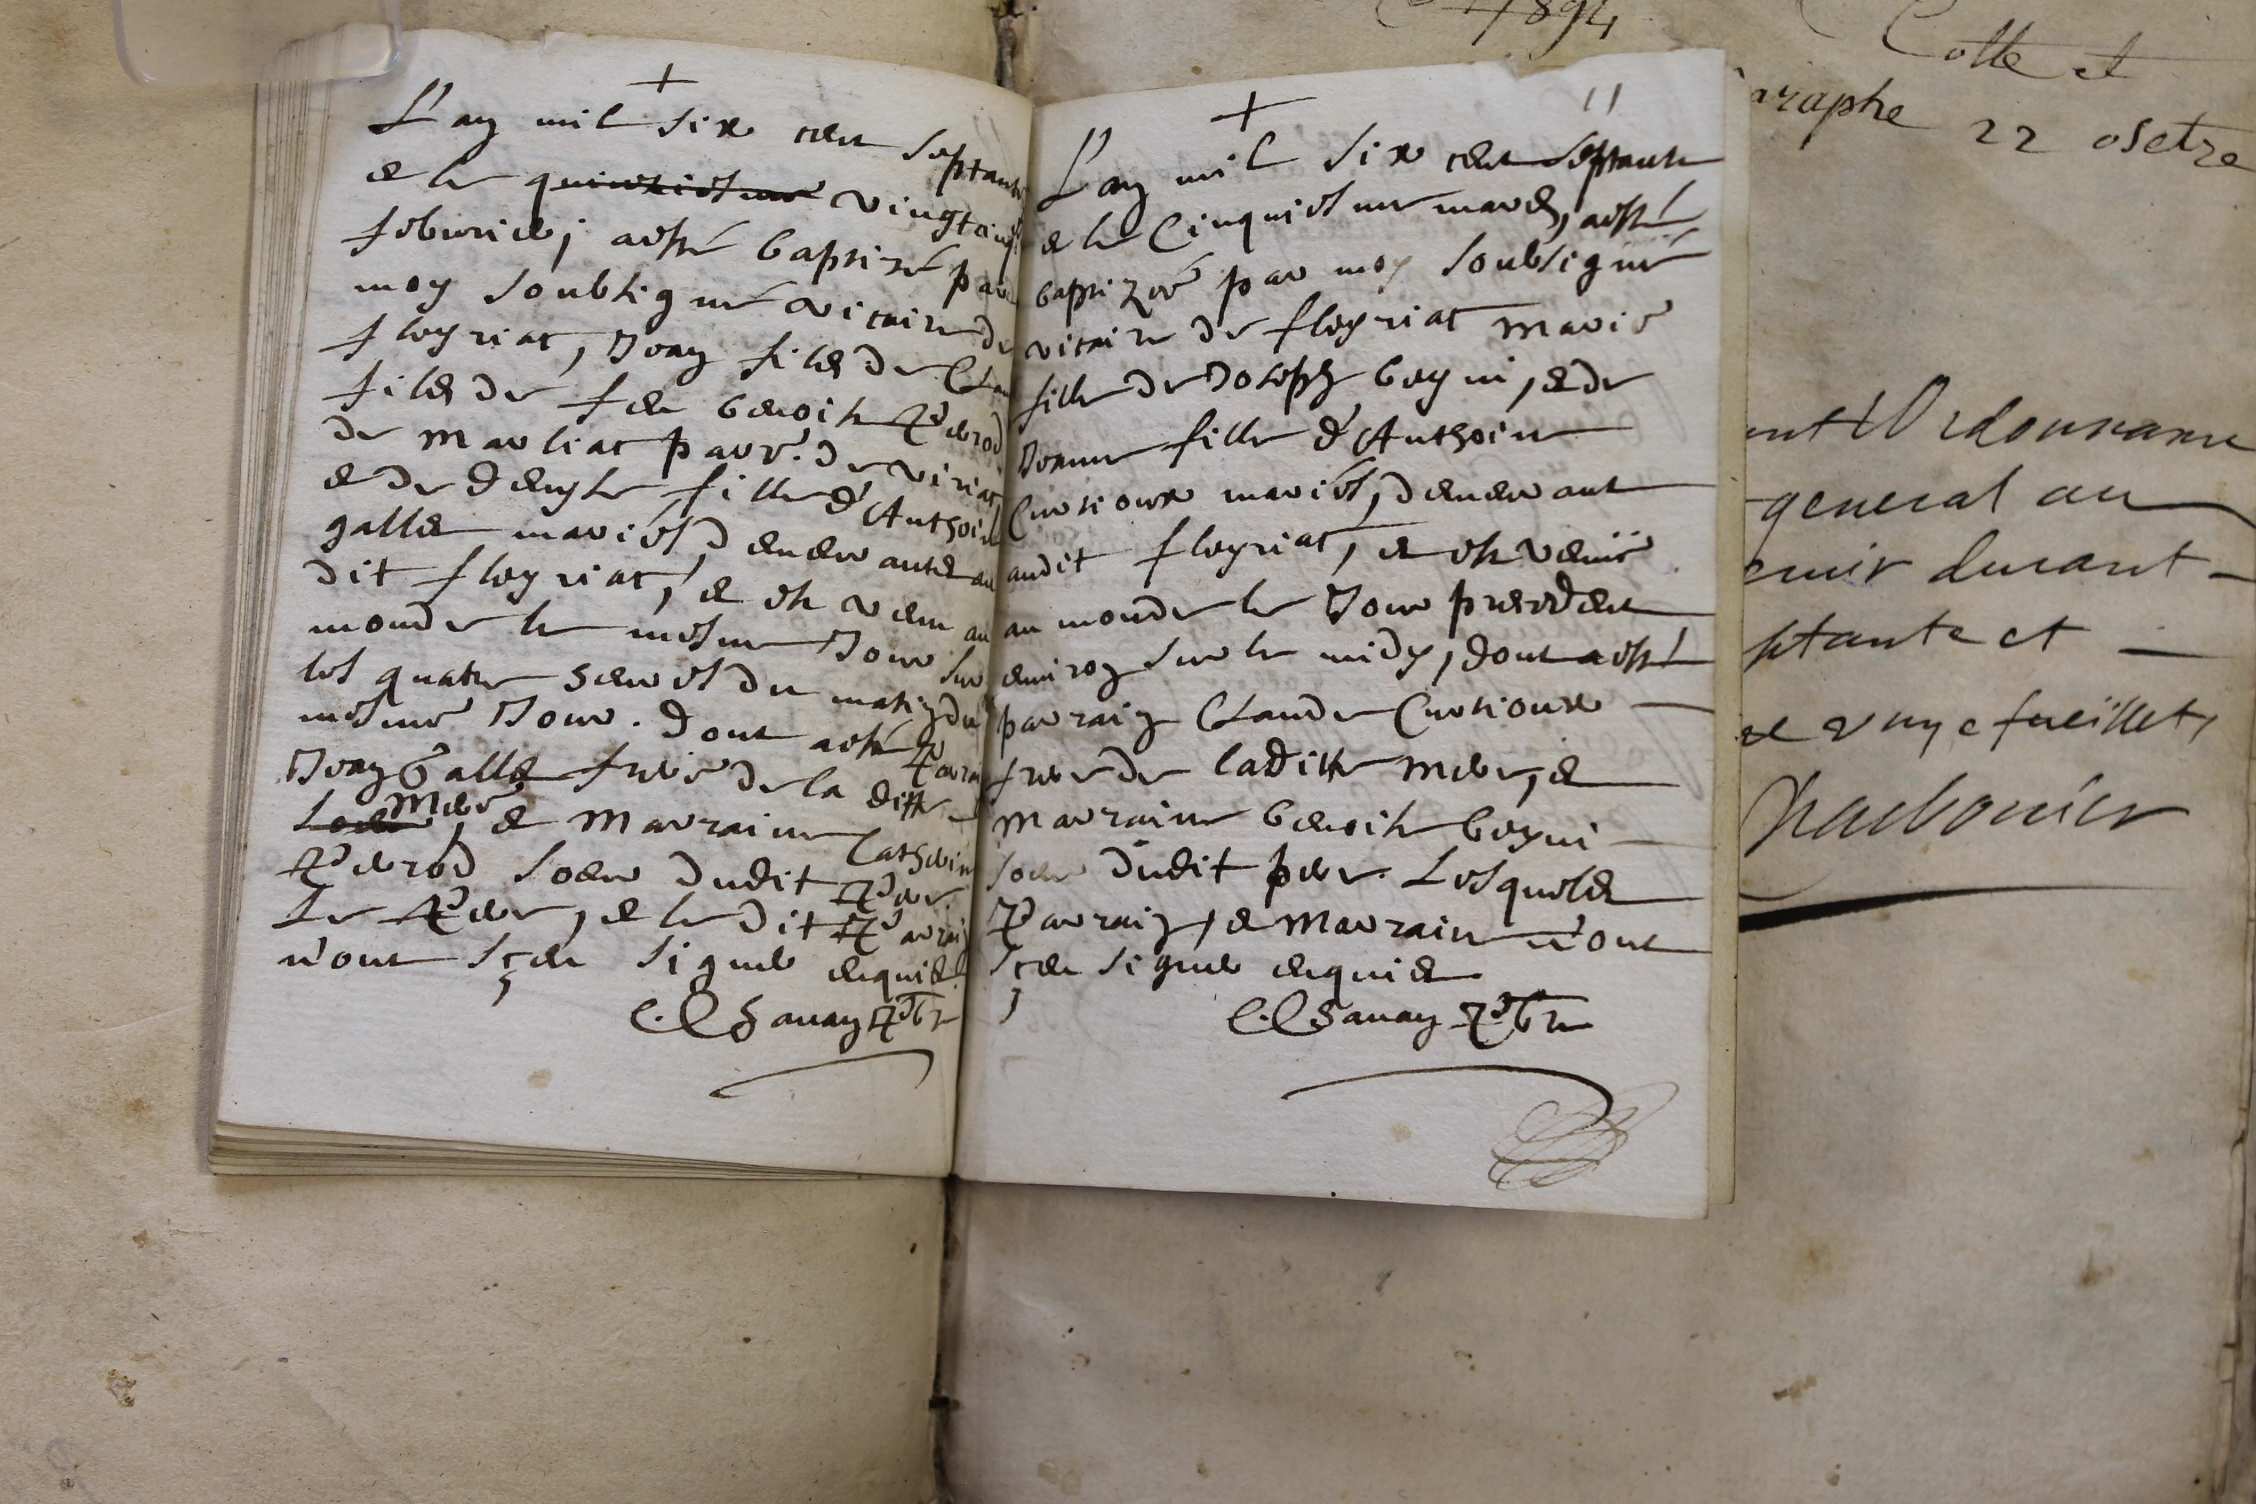 L'an mil six cent septante
et le quinziesme vingtcinq
febvrier, a esté baptisé par
moy soubsigné vicaire de
fleyriat, Jean fils de Clau
fils de feu benoit Perrod
de Marliat parr. de viriat
et de denyse fille d'Anthoin
gallet mariés demeurants au
dit fleyriat, et est venu au
monde le mesme Jour sur
les quatre heures du matin du
mesme Jour. dont a esté Parrai
Jean Gallet frere de la ditte
Mere, et Marraine Catherin
Perrod soeur dudit Pere
Le Pere, et le dit Parrain
n'ont sçeu signer enquis
C. Chanay Pbre
11
L'an mil six cent septante
et le Cinquiesme mars, a esté
baptizée par moy soubsigné
vicaire de fleyriat Marie
fille de Joseph beyni, et de
Jeanne fille d'Anthoine
Curtioux mariés, demeurant
audit fleyriat, et est venüe
au monde le Jour precedent
environ sur le midy, dont a esté
parrain Claude Curtioux
frere de laditte Mere, et
Marraine benoite beyni
soeur dudit pere. Lesquels
Parrain, et Marraine n'ont
sçeu signer enquis
C. Chanay Pbre
1894
Cotte et
araphe 22 osetze
ent Ordonnance
general au
enir durant
ptante et
et unze fueillets
Charbonier